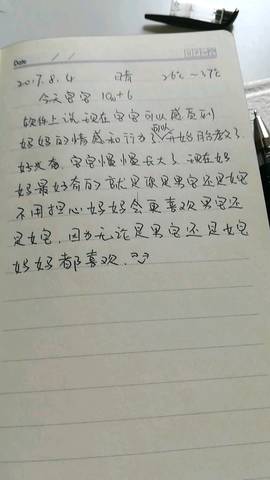 Date
2017.8.4 晴 26℃~37℃
今天宝宝10w+6
软件上说现在宝宝可以感觉到
妈妈的情感和行为了,可以开始胎教了
好兴奋,宝宝慢慢长大了,现在妈
妈最好奇的就是你是男宝还是女宝
不用担心妈妈会更喜欢男宝还
是女宝,因为无论是男宝还是女宝
妈妈都喜欢.